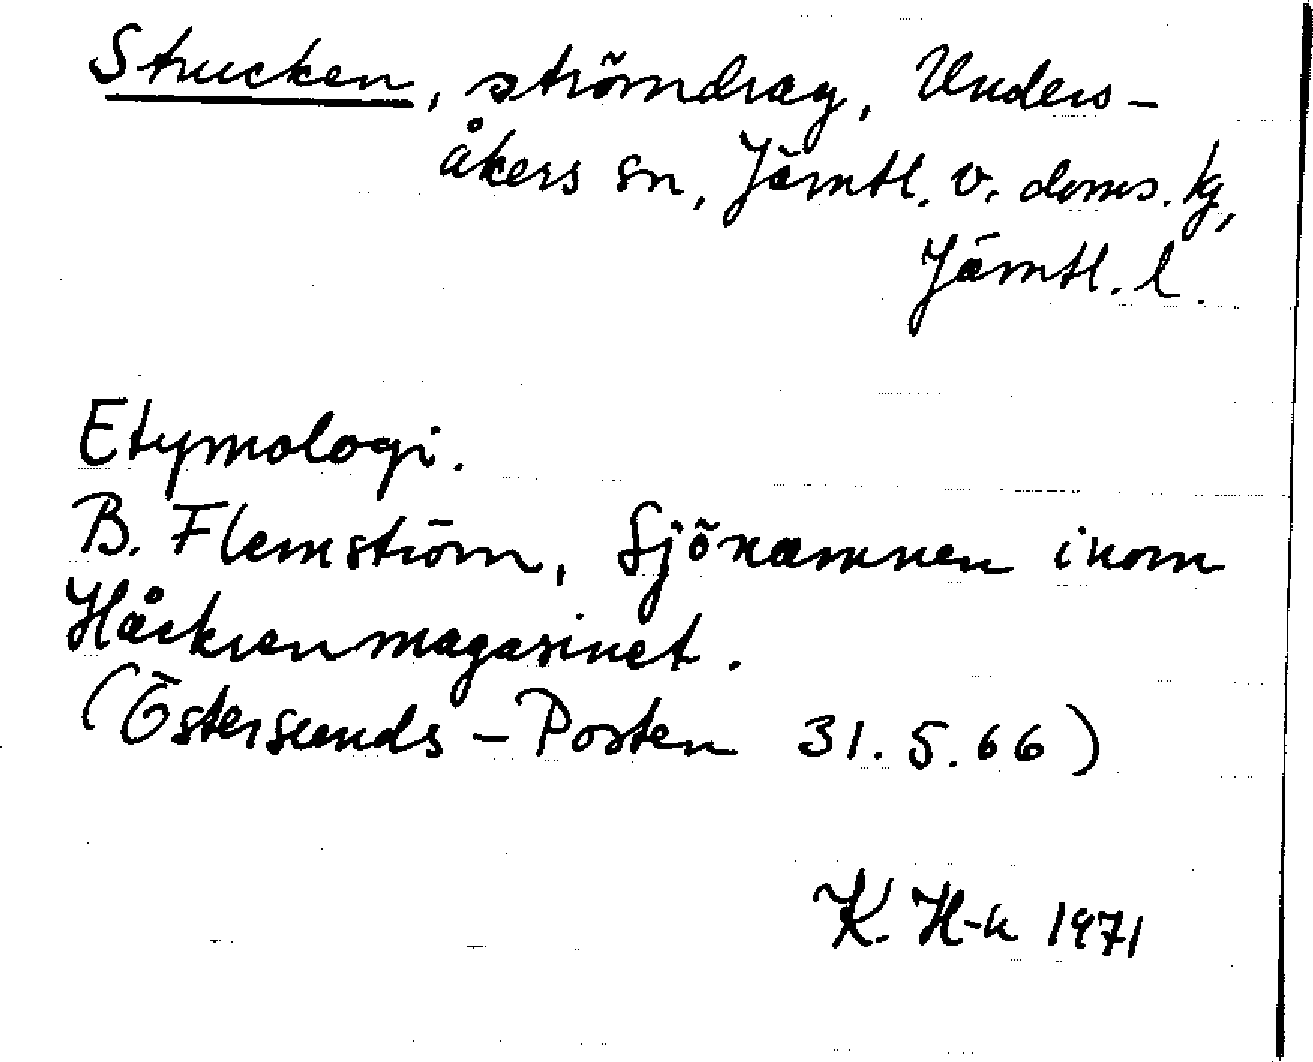 Strucken, strömdrag, Unders-
åkers sn, Jämtl. v. doms. hg,
Jämtl. l.
Etymologi.
B. Flemström, Sjönamnen inom
Håckrenmagasinet.
(Östersunds-Posten 31.5.66)
K. H-k 1971